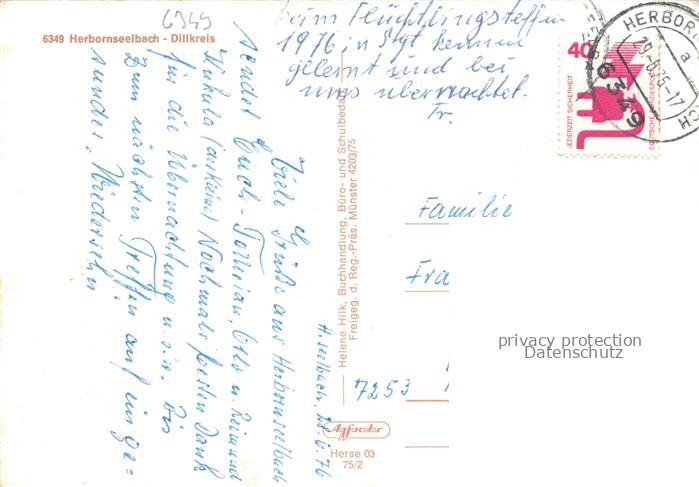 6349
6349 Herbornseelbach - Dillkreis
beim Flüchtlingsteffen
1976 in Stgt kennen
gelernt und bei
uns übernachtet.
Fr.
H. seelbach, 28.6.76
Viele Grüße aus Herbornseelbach
sendet Euch - Otto u. Reimund
Kukula Nochmals besten Dank
für die Übernachtung u.s.w. Bis
zum nächsten Treffen auf ein ge-
sundes, Wiedersehn
Helene Hilk, Buchhandlung, Büro- und Schulbedar
Freigeg. d. Reg.-Präs. Münster 4203/75
Agfacolor
Herse 03
75/2
40
JEDERZEIT SICHERHEIT
DEUTSCHE BUNDESPOST
HERBOR
a
6349
Familie
Fra
7253
privacy protection
Datenschutz